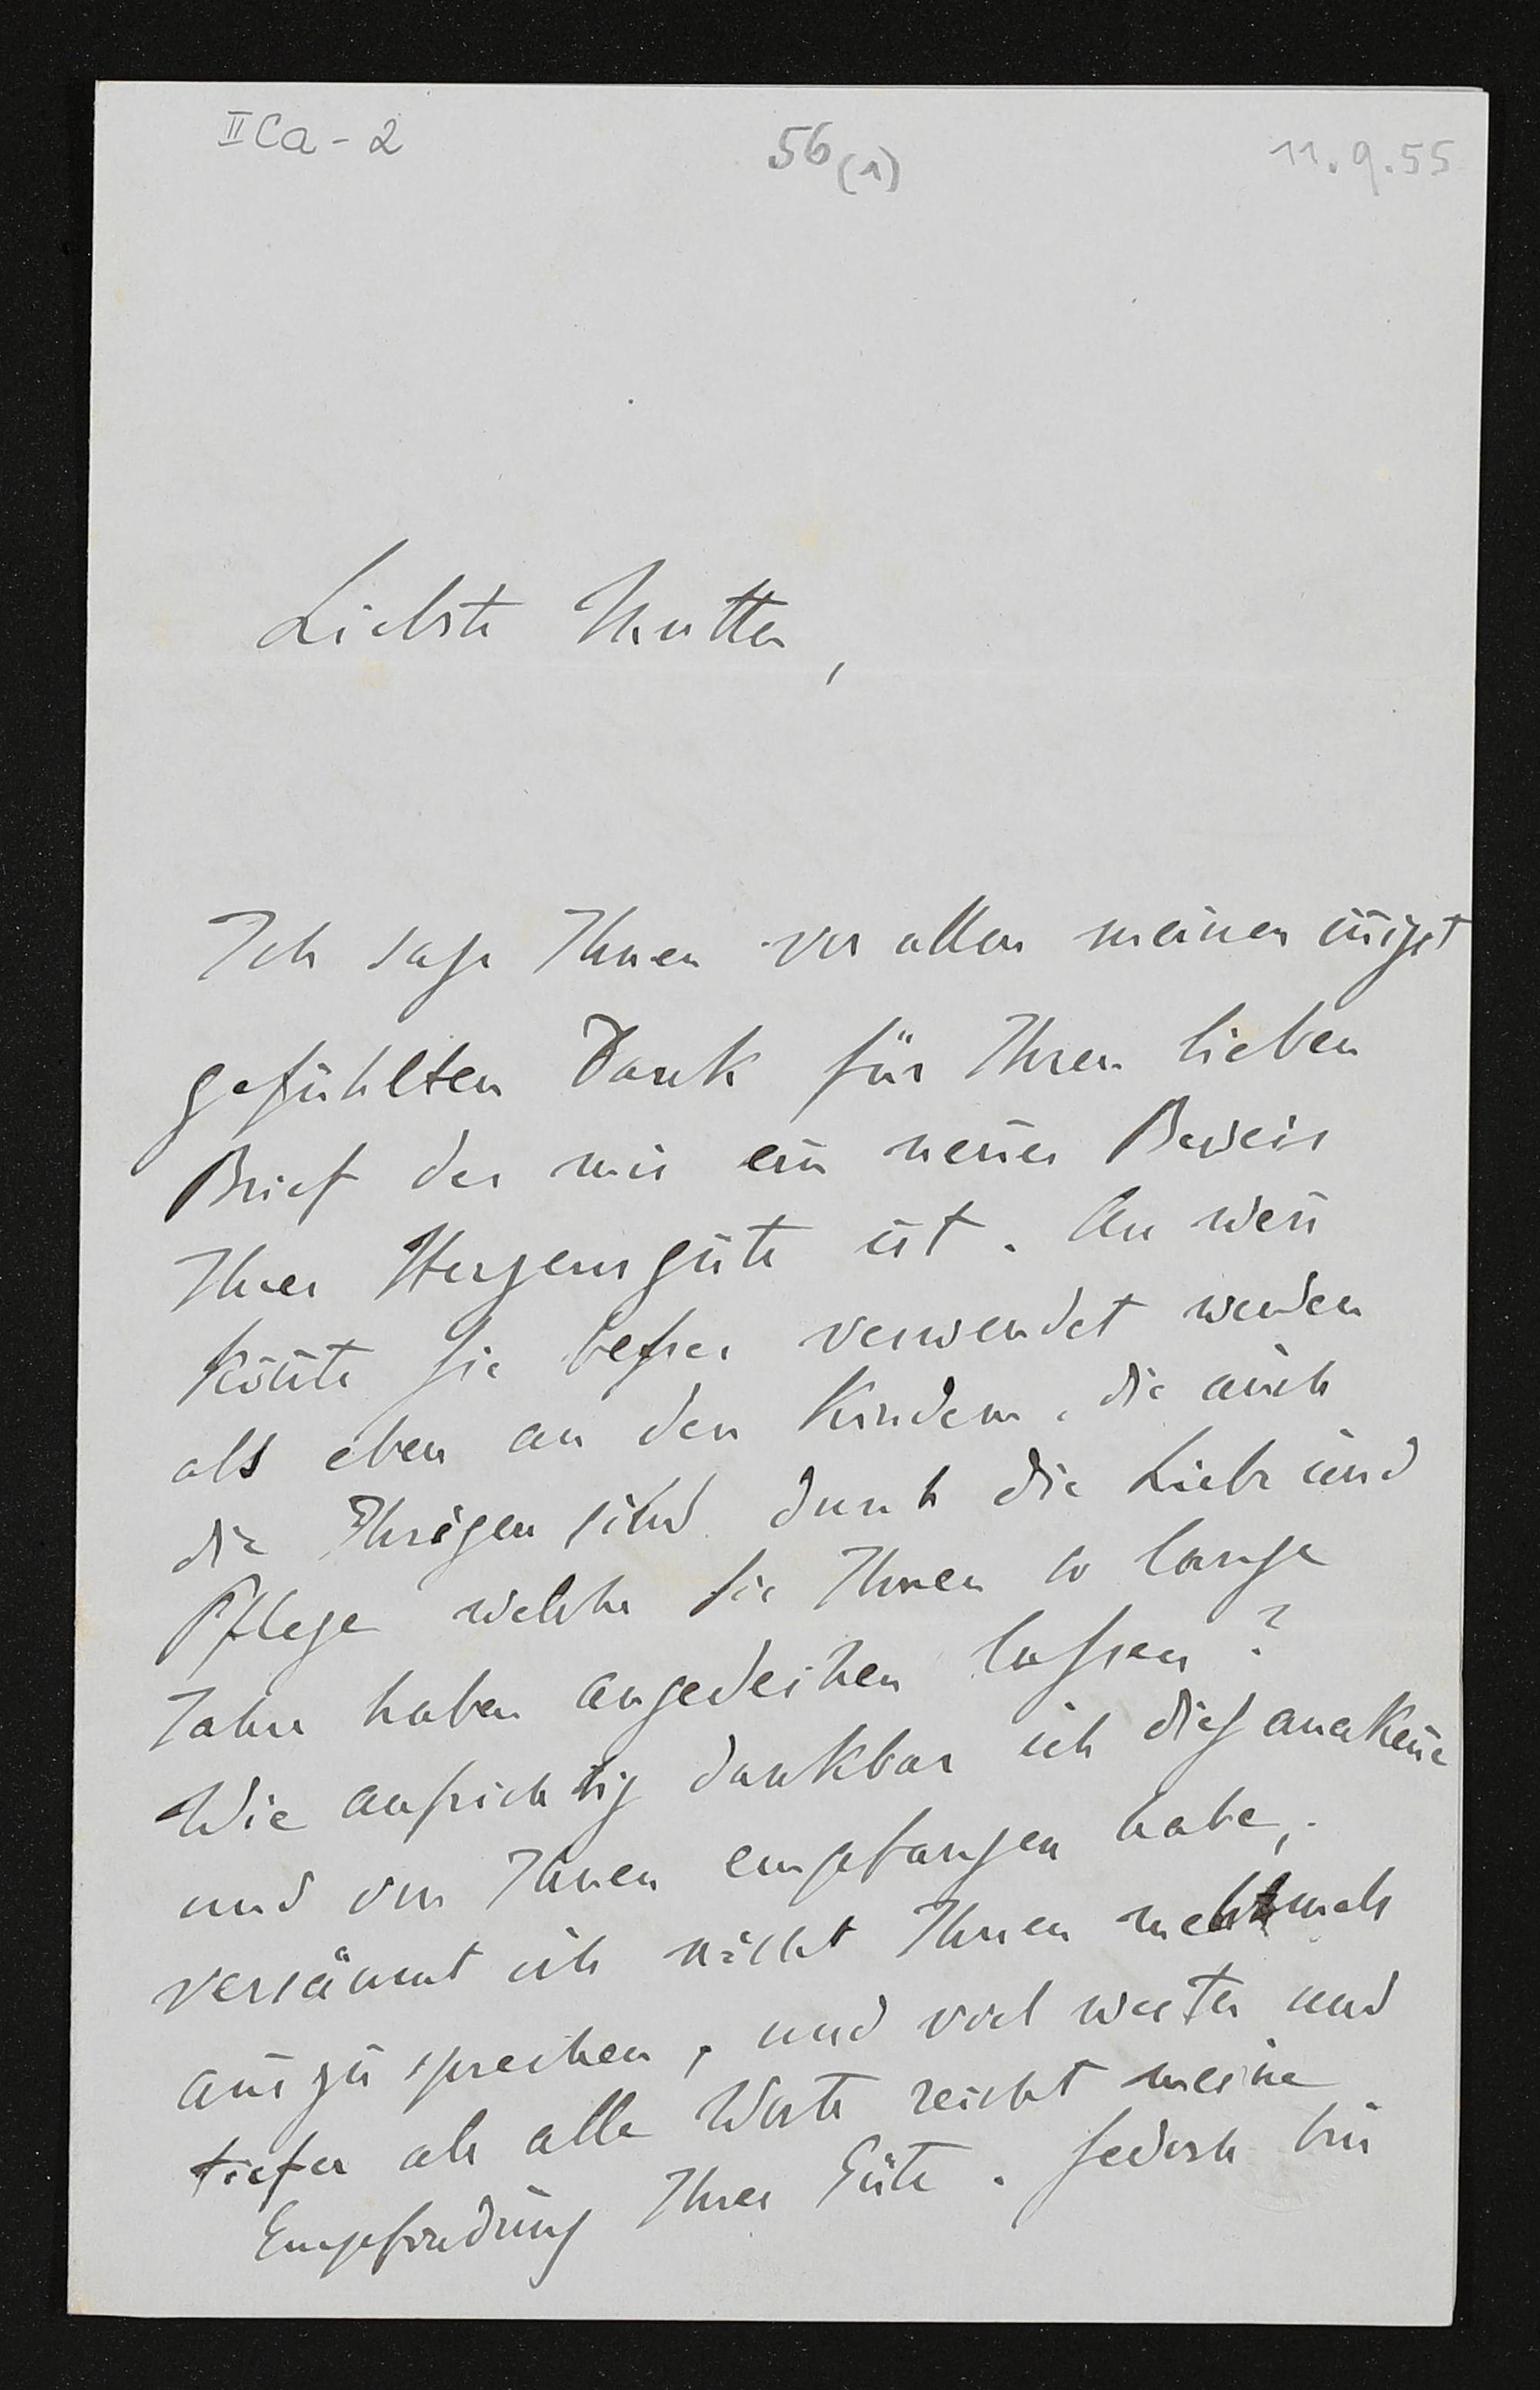 II Ca - 2
56 (1)
11.9.55
Liebste Mutter,
Ich sage Ihnen vor allem meinen iñigst
gefühlten Dank für Ihren lieben
Brief der mir ein neuer Beweis
Ihrer Herzensgüte ist. An weñ
köñte sie besser verwendet werden
als eben an den Kindern, die auch
die Ihrigen sind durch die Liebe und
Pflege welche Sie Ihnen so lange
Jahre haben angedeihen lassen?
Wie aufrichtig dankbar ich dieß anerkeñe
und von Ihnen empfangen habe,
versäumt ich nicht Ihnen mehrmals
auszusprechen, und viel weiter und
tiefer als alle Worte reicht meine
Empfindung Ihrer Güte. Jedoch bin